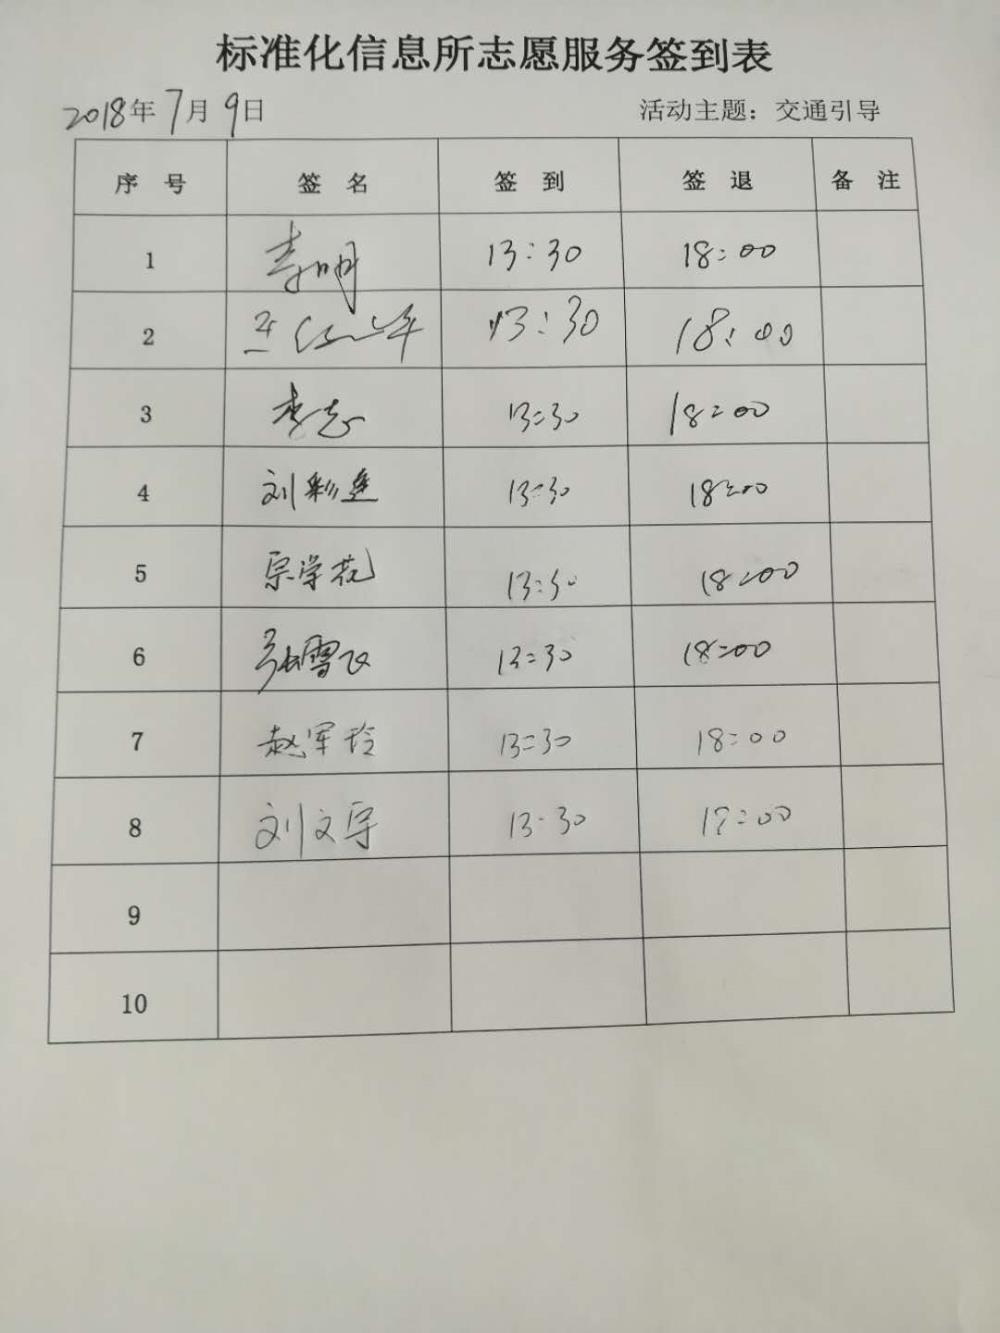 标准化信息所志愿服务签到表
2018年7月9日 活动主题：交通引导
序号 签名 签到 签退 备注
1 李明 13:30 18:00
2 13:30 18:00
3 李志 13:30 18:00
4 刘彩莲 13:30 18:00
5 宗学花 13:30 18:00
6 张雪飞 13:30 18:00
7 赵军玲 13:30 18:00
8 刘文宇 13:30 18:00
9
10